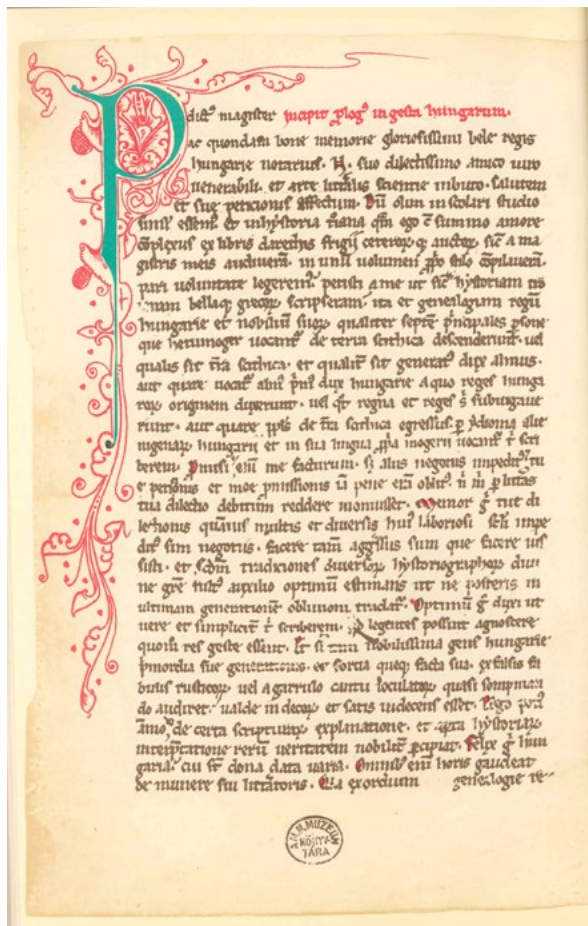 P dict⁹ magister incipit p̃log⁹ in gesta hungarum.
ac quondam bone memorie gloriosissimi bele regis
hungarie notarius. N. suo dilectissimo amico uiro
uenerabili. et arte litt̃alis scientie inbuto. salutem
et sue peticionis effectum. Dũ olim in scolari studio
simul essem⁹. et in hystoria t̃iana q̃m ego cũ summo amore
cõplexus ex libris daretis frigii ceteroꝝ q̃ auctoꝝ. sic̃ a ma
gistris meis audiuerã. in unũ uolumen ꝓpo stilo cõpilauerã.
pari uoluntate legerem⁹. petisti a me ut sic̃ hystoriam t̃ia
nam bellaq̃ grecoꝝ scripseram. ita et genealogiam regũ
hungarie et nobiliũ suoꝝ qualiter septẽ p̃ncipales ꝑsone
que hetumoger uocant̃ de terra scithica descenderũt. uel
qualis sit t̃ra scithica. et qualit̃ sit generat⁹ dux almus.
aut quare uocat̃ alm⁹ p̃m⁹ dux hungarie a quo reges hunga
roꝝ originem duxerunt. uel q̃t regna et reges s̃ subiugaue
runt. aut quare ppl̃s de t̃ra scithica egressus. ꝑ ydioma alie
nigenaꝝ hungarii et in sua lingua ꝓp̃a mogerii uocant̃ t̃ scri
berem. Promisi em̃ me facturum. s; aliis negotiis impedit⁹. tu
e peticionis et mee ꝓmissionis iã pene erã oblit⁹. ñ m̃ ꝑ litt̃as
tua dilectio debitum reddere monuisset. Memor g̃ tue di
lectionis quãuis multis et diuersis hui⁹ laboriosi sc̃li impe
dit⁹ sim negotiis. facere tam̃ aggressus sum que facere ius
sisti. et sc̃dm traditiones diuersoꝝ hystoriographoꝝ diui
ne gr̃e fult⁹ auxilio optimũ estimans ut ne posteris in
ultimam generationẽ obliuioni tradat̃. Optimũ g̃ duxi ut
uere et simplicit̃ t̃ scriberem. legentes possint agnoscere
quom̃ res geste essent. Et si tam nobilissima gens hungarie
p̃mordia sue generationis. et fortia queq; facta sua. ex falsis fa
bulis rusticoꝝ. uel a garrulo cantu ioculatoꝝ quasi sompnian
do audiret. ualde indecoꝝ et satis indecens esset. Ergo pot⁹
am̃o de certa scripturaꝝ explanatione. et aꝑta hystoriaꝝ
interp̃tatione rerũ ueritatem nobilit̃ ꝑcipiat. Felix g̃ hun
garia. cui s̃t dona data uaria. Omnib⁹ em̃ horis gaudeat
de munere sui litt̃atoris. Quia exordium genealogie re-
MUZEUM
KÖNYV
TÁRA